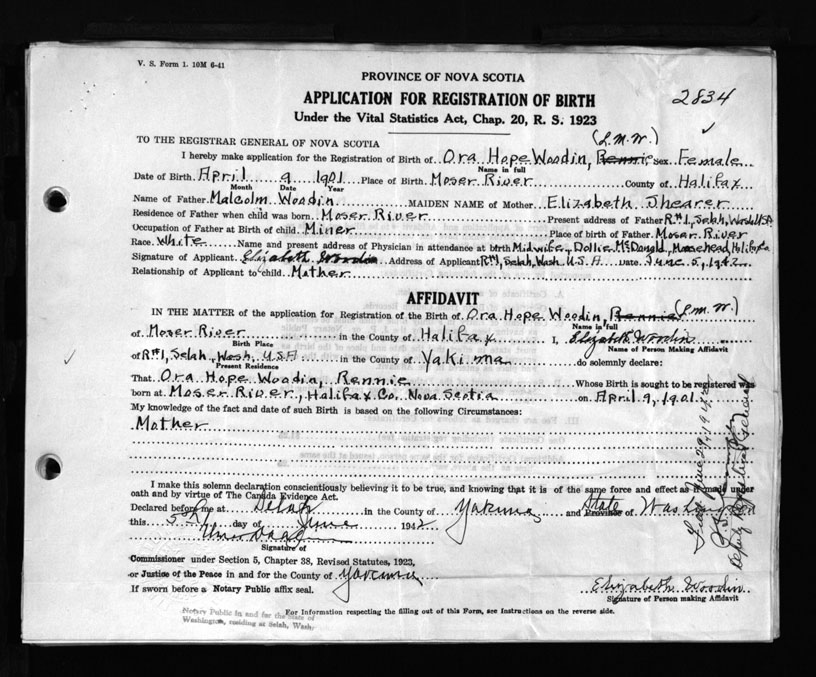 V. S. Form 1. 10M 6-41
PROVINCE OF NOVA SCOTIA
APPLICATION FOR REGISTRATION OF BIRTH
2834
Under the Vital Statistics Act, Chap. 20, R. S. 1923
TO THE REGISTRAR GENERAL OF NOVA SCOTIA
(L.M.W.)
I hereby make application for the Registration of Birth of Ora Hope Woodin, Rennie Sex Female
Name in full
Date of Birth April 9 1901 Place of Birth Moser River County of Halifax
Month Date Year
Name of Father Malcolm Woodin MAIDEN NAME of Mother Elizabeth Shearer
Residence of Father when child was born Moser River Present address of Father R#1, Selah, Wash USA
Occupation of Father at Birth of child Miner Place of birth of Father Moser River
Race White Name and present address of Physician in attendance at birth Midwife, Dollie McDonald, Moosehead, Halifax Co
Signature of Applicant Elizabeth Woodin Address of Applicant R#1, Selah, Wash. U.S.A Date June 5, 1942
Relationship of Applicant to child Mother
AFFIDAVIT
IN THE MATTER of the application for Registration of the Birth of Ora Hope Woodin, Rennie (L.M.W.)
Name in full
of Moser River in the County of Halifax I, Elizabeth Woodin
Birth Place Name of Person Making Affidavit
of R#1, Selah, Wash, U.S.A in the County of Yakima do solemnly declare:
Present Residence
That Ora Hope Woodin, Rennie Whose Birth is sought to be registered was
born at Moser River, Halifax Co. Nova Scotia on April 9, 1901.
My knowledge of the fact and date of such Birth is based on the following Circumstances:
Mother
I make this solemn declaration conscientiously believing it to be true, and knowing that it is of the same force and effect as if made under
oath and by virtue of The Canada Evidence Act.
Declared before me at Selah in the County of Yakima and State Province of Washington
this 5th day of June 1942
Signature of
Commissioner under Section 5, Chapter 38, Revised Statutes, 1923,
or Justice of the Peace in and for the County of Yakima
If sworn before a Notary Public affix seal.
Elizabeth Woodin
Signature of Person making Affidavit
For Information respecting the filling out of this Form, see Instructions on the reverse side.
Notary Public in and for the State of
Washington, residing at Selah, Wash.
June 29, 1942
Deputy Registrar General